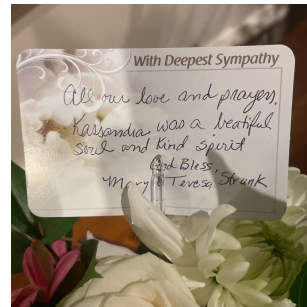 With Deepest Sympathy
All our love and prayers,
Kassandra was a beatiful
soul and kind spirit
God Bless,
Mary & Teresa Strunk